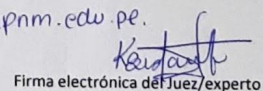 pnm.edu.pe.
Firma electrónica del Juez/experto